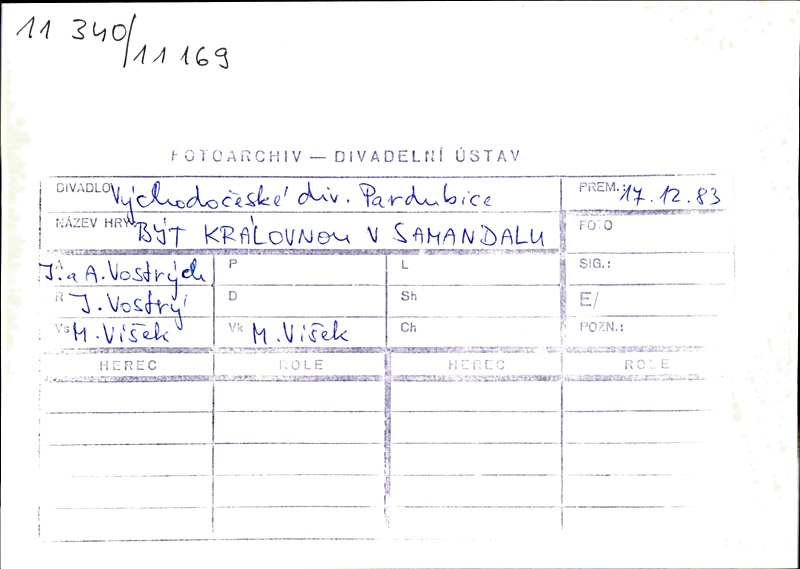 11 340/11 169
FOTOARCHIV — DIVADELNÍ ÚSTAV
DIVADLO Východočeské div. Pardubice PREM.: 17.12.83
NÁZEV HRY BÝT KRÁLOVNOU V SAMANDALU FOTO
A J. a A. Vostrých P L SIG.:
R J. Vostrý D Sh E/
Vs M. Víšek Vk M. Víšek Ch POZN.:
HEREC ROLE HEREC ROLE